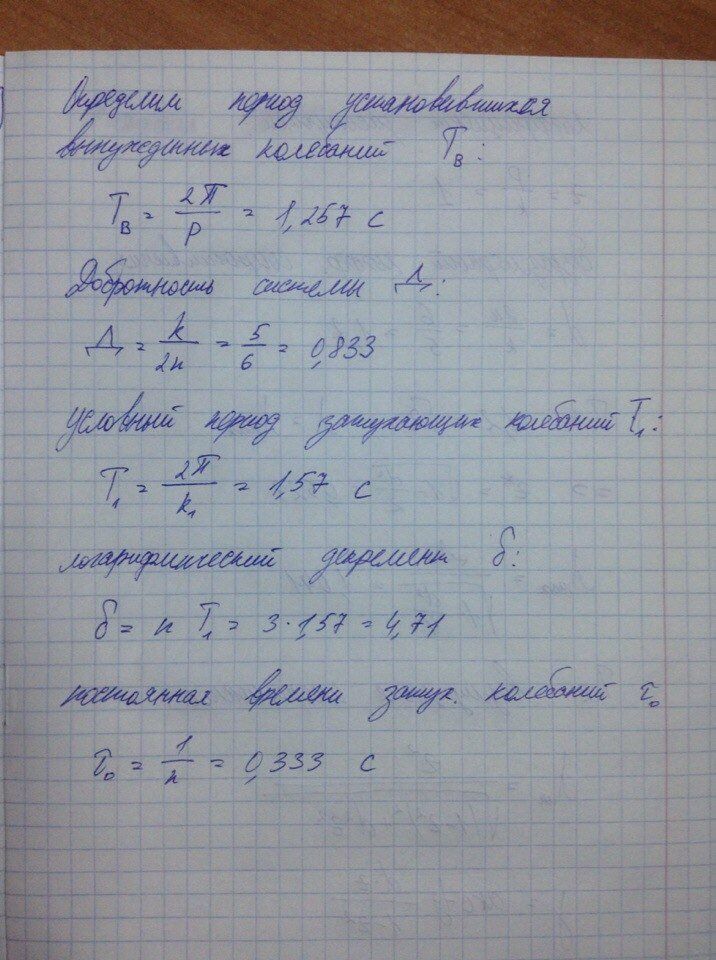 Определим период установившихся
вынужденных колебаний T_в:
T_в = 2π/p = 1,257 с
Добротность системы Д:
Д = k/2n = 5/6 = 0,833
условный период затухающих колебаний T₁:
T₁ = 2π/k₁ = 1,57 с
логарифмический декремент δ:
δ = n T₁ = 3·1,57 = 4,71
постоянная времени затух. колебаний τ₀
τ₀ = 1/n = 0,333 с